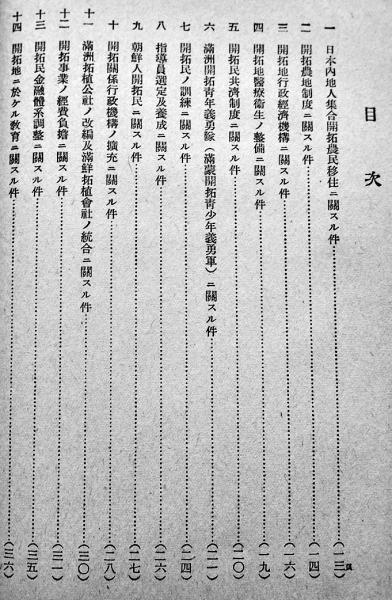 目次
一 日本内地人集合開拓農民移住ニ關スル件……(一三)頁
二 開拓農地制度ニ關スル件……(一四)
三 開拓地行政經濟機構ニ關スル件……(一六)
四 開拓地醫療衞生ノ整備ニ關スル件……(一九)
五 開拓民共濟制度ニ關スル件……(二〇)
六 滿洲開拓青年義勇隊(滿蒙開拓青少年義勇軍)ニ關スル件……(二一)
七 開拓民ノ訓練ニ關スル件……(二四)
八 指導員選定及養成ニ關スル件……(二六)
九 朝鮮人開拓民ニ關スル件……(二七)
十 開拓關係行政機構ノ擴充ニ關スル件……(二八)
十一 滿洲拓植公社ノ改編及滿鮮拓植會社ノ統合ニ關スル件……(三〇)
十二 開拓事業ノ經費負擔ニ關スル件……(三一)
十三 開拓民金融體系調整ニ關スル件……(三五)
十四 開拓地ニ於ケル教育ニ關スル件……(三六)